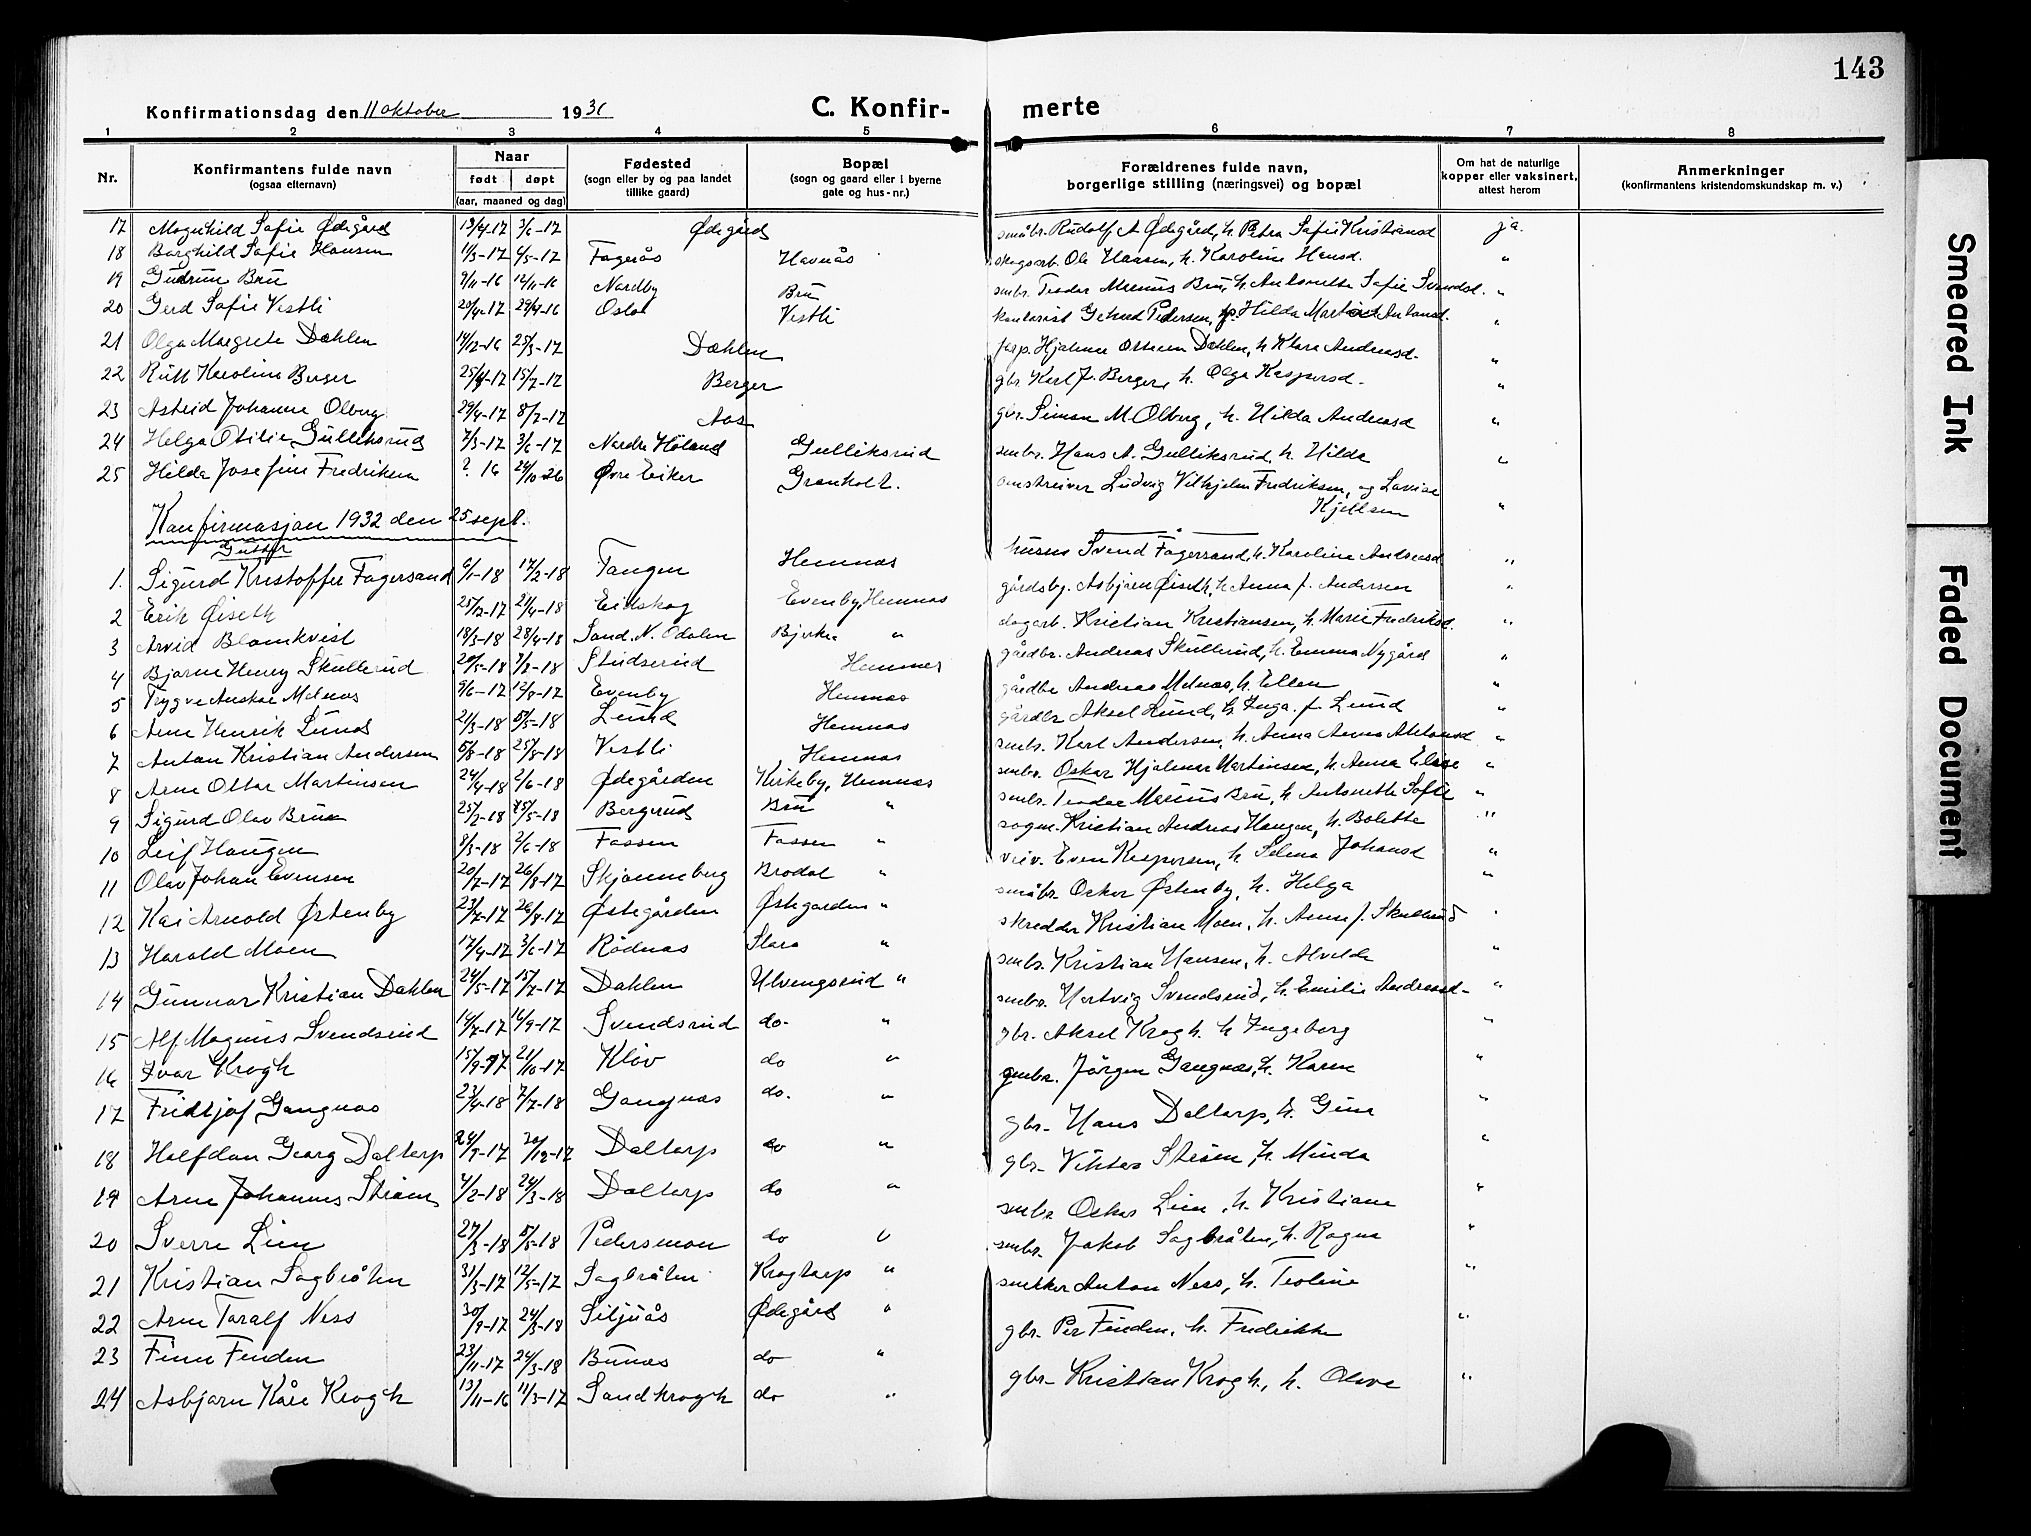 143
Konfirmationsdag den 11 oktober 1931 C. Konfir- merte
1 2 3 4 5 6 7 8
Nr. Konfirmantens fulde navn (ogsaa efternavn) Naar født døpt (aar, maaned og dag) Fødested (sogn eller by og paa landet tillike gaard) Bopæl (sogn og gaard eller i byerne gate og hus-nr.) Forældrenes fulde navn, borgerlige stilling (næringsvei) og bopæl Om hat de naturlige kopper eller vaksinert, attest herom Anmerkninger (konfirmantens kristendomskundskap m. v.)
17 Magnhild Sofie Ødegård 13/4-17 3/6-17 Ødegård småbr. Rudolf A Ødegård, h. Petra Sofie Kristiansd ja.
18 Borghild Sofie Hansen 11/3-17 6/5-17 Fagerås Havnås skogsarb. Ole Hansen, h. Karoline Hansd. "
19 Gudrun Bru 9/11-16 12/11-16 Nordby Bru smbr. Teodor Marius Bru, h. Antonette Sofie Svendsd. "
20 Gerd Sofie Vestli 20/4-17 29/4-16 Oslo Vestli kontorist Pedersen, Hilda "
21 Olga Margrete Dæhlen 14/12-16 25/3-17 Dæhlen forp. Hjalmar Ottesen Dæhlen, h Klara Andreasd. "
22 Rutt Karoline Berger 25/4-17 15/7-17 Berger gbr Karl J. Berger, h. Olga Kaspersd. "
23 Astrid Johanne Olberg 29/4-17 8/7-17 Aas gbr. Simen M. Olberg, h. Hilda Andreasd "
24 Helga Otilie Gulliksrud 7/3-17 3/6-17 Nordre Høland Gulliksrud smbr. Hans A. Gulliksrud, h. Hilda "
25 Hilda Josefine Fredriksen ? 16 24/10-26 Øvre Eiker Granholt. omstreiver Ludvig Vilhjelm Fredriksen, og Lovise
Kjellsen "
Konfirmasjon 1932 den 25 sept.
Gutter
1. Sigurd Kristoffer Fagersand 6/1-18 17/2-18 Tangen Hemnas husm Svend Fagersand, h. Karoline Andreasd "
2 Erik Øiseth 25/12-17 21/4-18 Eidskog Evenby, Hemnas gårdsby. Asbjørn Øiseth, h Anna f. Andersen "
3 Arvid Blomkvist 18/3-18 28/4-18 Sand. N. Odalen Bjerke " dagarb. Kristian Kristiansen, h. Marie Fredriksd. "
4 Bjarne Henry Skullerud 20/5-18 7/7-18 Studserud Hemnes gårdbr. Andreas Skullerud, h. Emma Nygård "
5 Trygve Anskar Melnas 9/6-17 12/8-17 Evenby Hemnas gårdbr Andreas Melnas, h. Ellen "
6 Arne Henrik Lund 21/3-18 5/5-18 Lund Hemnas gårdbr Aksel Lund, h. Inga f. Lund "
7 Anton Kristian Andersen 6/8-18 25/8-18 Vestli Hemnas smbr. Karl Andersen, h. Anna "
8 Arne Ottar Martinsen 24/4-18 2/6-18 Ødegården Kirkeby, Hemnas smbr. Oskar Hjalmar Martinsen, h. Anna Elise "
9 Sigurd Olav Brun 25/2-18 25/5-18 Bergerud Bru " smbr. Teodor Marius Bru, h Antonette Sofie "
10 Leif Haugen 8/3-18 2/6-18 Fossen Fossen " sagm. Kristian Andreas Haugen, h. Bolette "
11 Olav Johan Evensen 20/7-17 26/8-17 Skjønneberg Brodal " veiv. Even Kaspersen, h Selma Johansd "
12 Kai Arnold Østenby 23/7-17 26/8-17 Østegården Østegården " småbr. Oskar Østenby, h. Helga "
13 Harald Moen 17/4-17 3/6-17 Rødnas Slora " skredder Kristian Moen, h. Anna f. Skullerud "
14 Gunnar Kristian Dahlen 24/5-17 15/7-17 Dahlen Ulvengsrud " smbr. Kristian Hansen, h. Alvilde "
15 Alf Magnus Svendsrud 14/7-17 16/9-17 Svendsrud do. " smbr. Hartvig Svendsrud, h. Emilie Andreasd. "
16 Ivar Krogh 15/9-17 21/10-17 Kløv do " gbr. Aksel Krogh. h Ingeborg "
17 Fridtjof Gangnas 23/4-18 7/7-18 Gangnas do. " smbr. Jørgen Gangnas, h. Karen "
18 Halfdan Georg Daltorp 24/9-17 20/12-17 Daltorp do " gbr- Hans Daltorp, h. Gina "
19 Arne Johannes Strøm 4/2-18 24/3-18 Daltorp do " gbr- Viktor Strøm, h. Minda "
20 Sverre Lien 27/3-18 5/5-18 Pedersmoen do " smbr Oskar Lien, h. Kristiane "
21 Kristian Sagbråten 31/3-17 12/5-17 Sagbråten Krogtorp " smbr. Jakob Sagbråten, h. Ragna "
22 Arne Toralf Ness 30/9-17 24/3-18 Siljuås Ødegård " snekker Anton Ness, h. Teoline "
23 Finn Finden 23/11-17 24/3-18 Bunes do " gbr. Per Finden, h. Fredrikke "
24 Asbjørn Kåre Krogh 13/11-16 11/3-17 Sandkrogh do " gbr- Kristian Krogh, h. Olava "
Smeared Ink
Faded Document